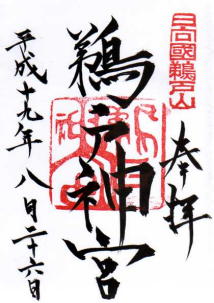 奉拝
日向國鵜戸山
鵜戸神宮
平成十九年八月二十六日